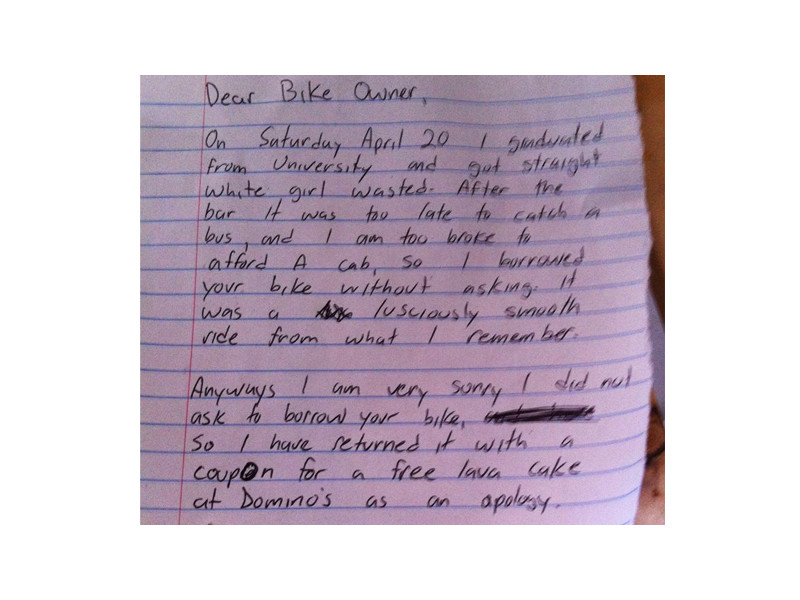 Dear Bike Owner,
On Saturday April 20 I graduated
from University and got straight
white girl wasted. After the
bar it was too late to catch a
bus, and I am too broke to
afford A cab, so I borrowed
your bike without asking. it
was a lusciously smooth
ride from what I remember.
Anyways I am very sorry I did not
ask to borrow your bike,
So I have returned it with a
coupon for a free lava cake
at Domino's as an apology.